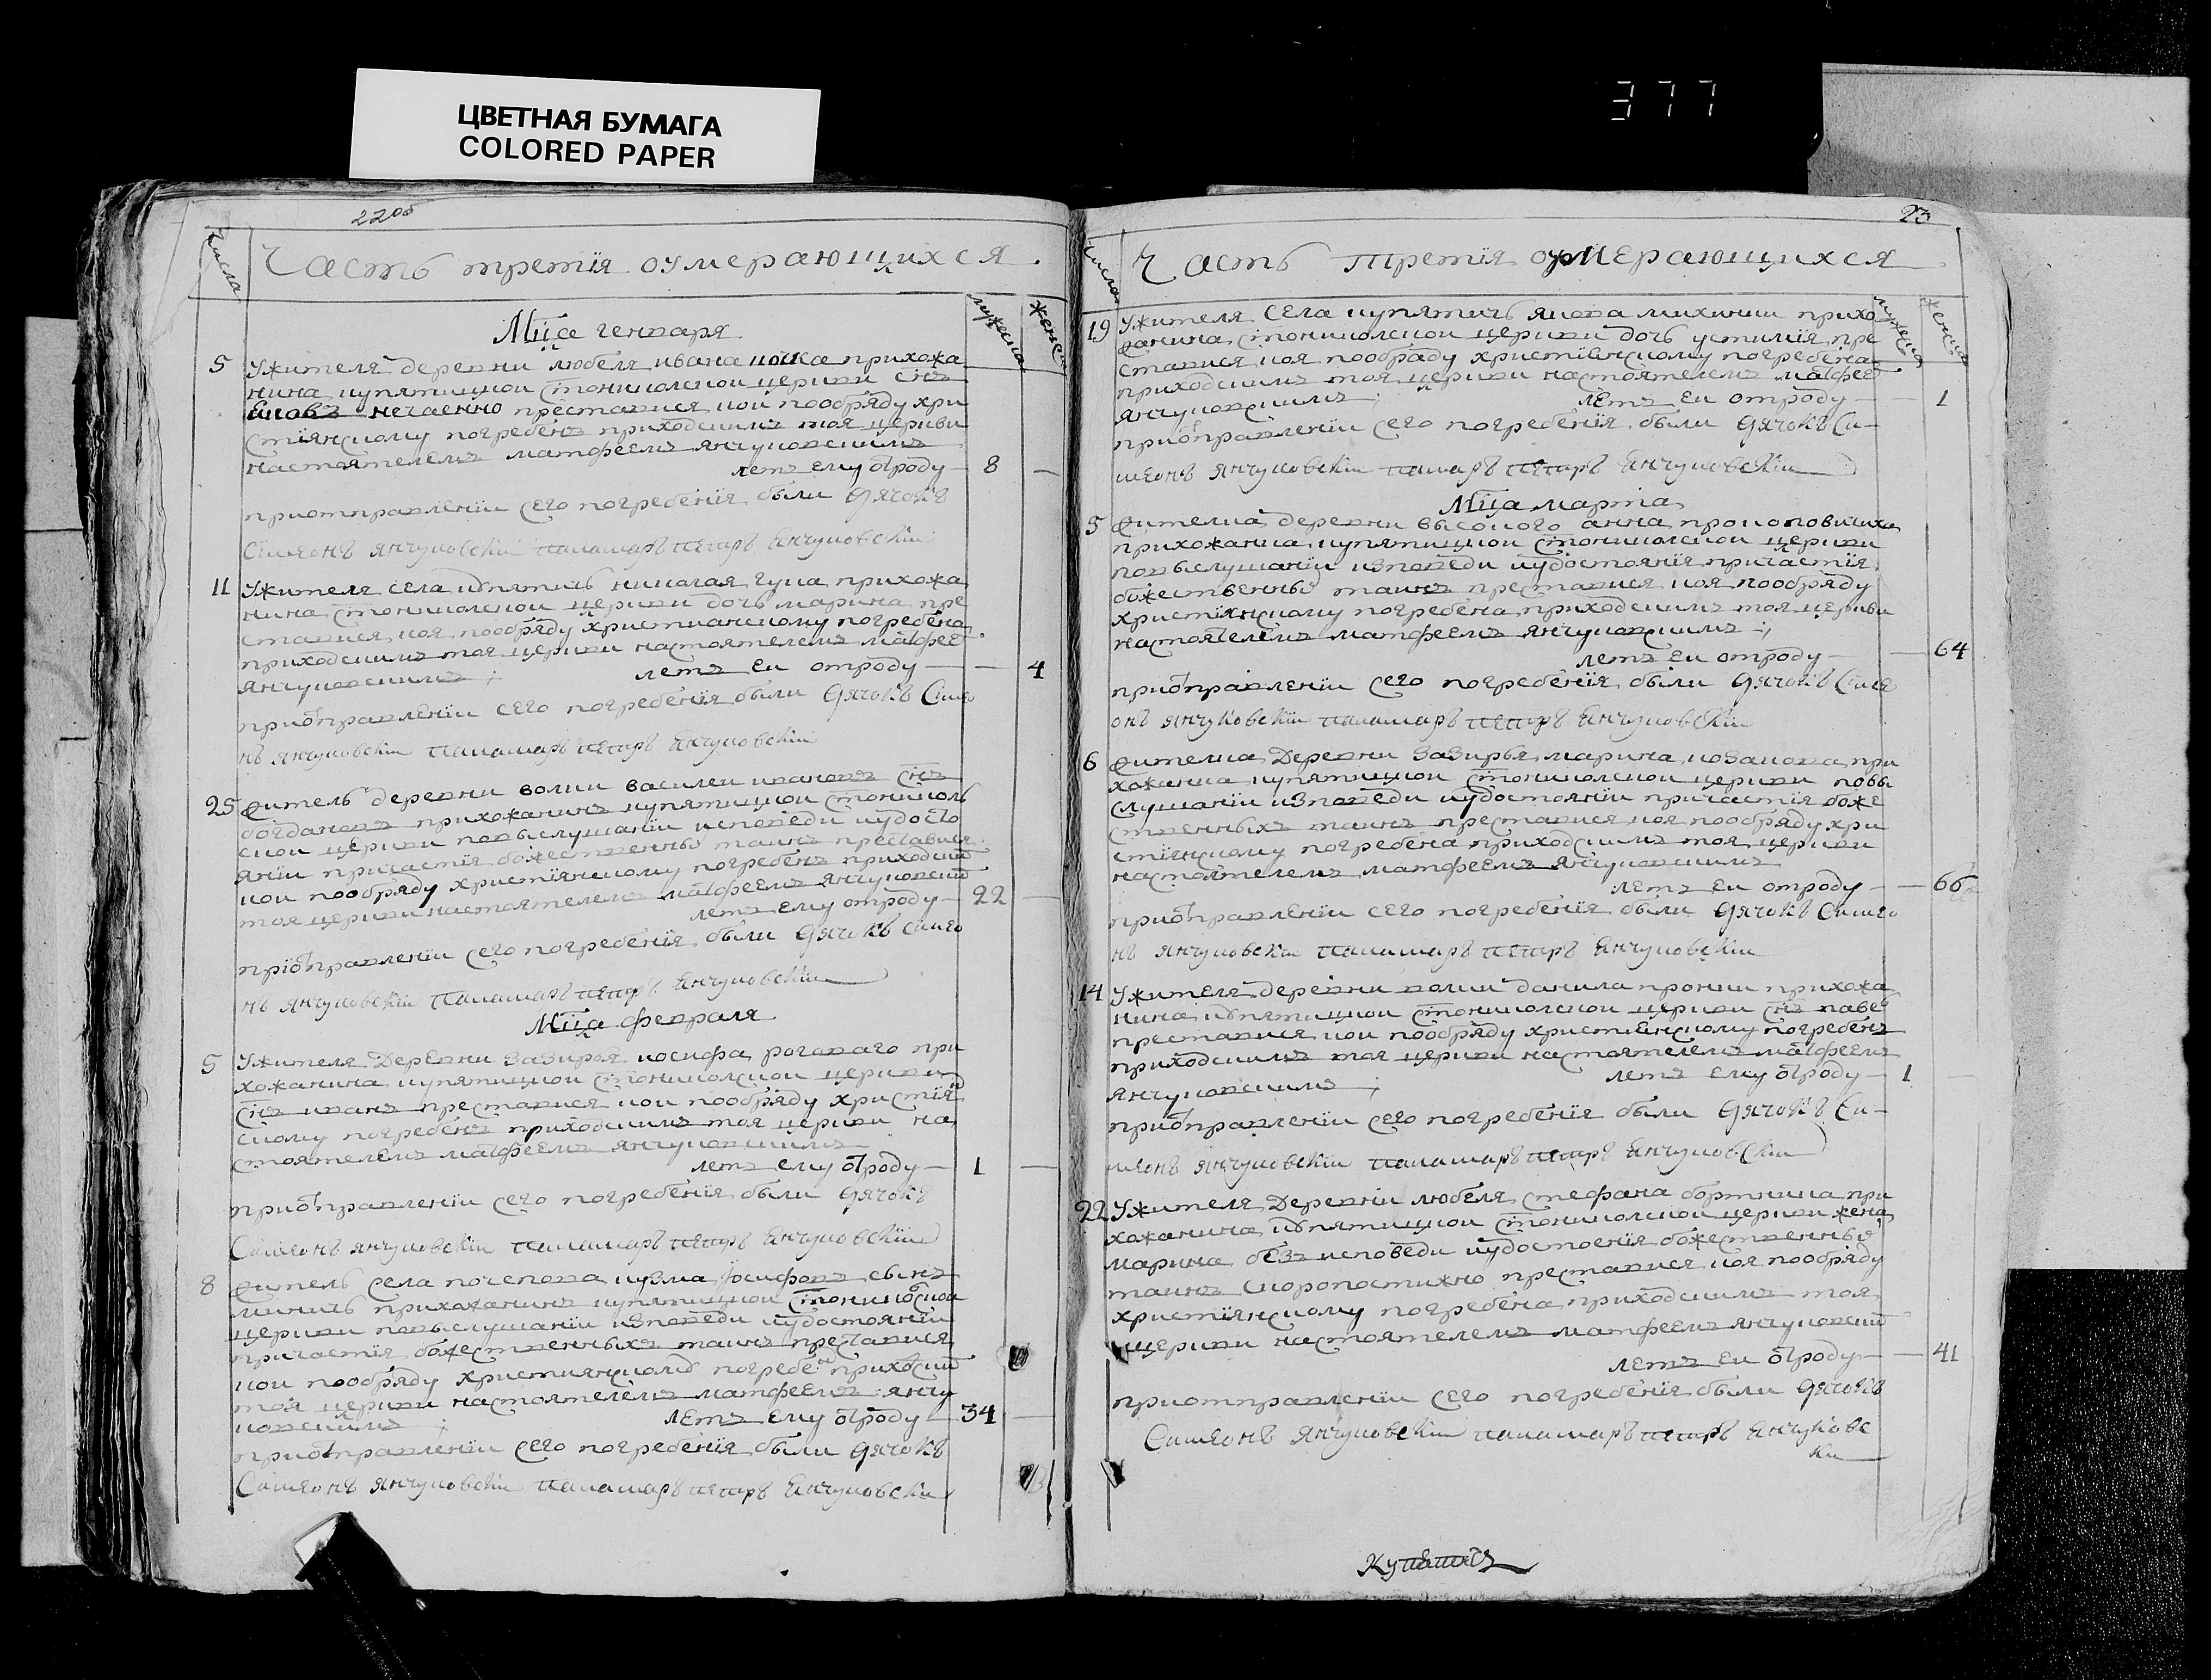 ЦВЕТНАЯ БУМАГА
COLORED PAPER
377
22об
числа
Часть третїя оумерающихся.
мужеска
женска
Мца генваря
5
Ужителя деревни любеля ивана прихожа
нина купятицкои стониколскои церкви снъ
нечаенно преставися кои пообряду хри
стїянскому погребенъ приходскимъ тоя церкви
настоятелемъ матфеемъ янчуковскимъ
летъ ему отроду 8
приотправленїи сего погребенїя были дячокъ
Симеонъ янчуковскїи паламаръ петръ янчуковскїи
11
Ужителя села кѹпятичъ николая гупа прихожа
нина стониколскои церкви дочь марина пре
ставися коя пообряду христианскому погребена
приходскимъ тоя церкви настоятелемъ матфее
янчуковскимъ; летъ еи отроду 4
приотправленїи сего погребенїя были дячокъ Симео
нъ янчуковскїи паламаръ петръ янчуковскїи
25
житель деревни волки василеи ивановъ снъ
богдановъ прихожанинъ купятицкои стониколь
скои церкви повыслушанїи исповеди иудосто
янїи причастїя божественны таинъ преставися
кои пообряду христїянскому погребенъ приходским
тоя церкви настоятелемъ матфеемъ янчуковским
летъ ему отроду 22
приотправленїи сего погребенїя были дячокъ Симео
нъ янчуковскїи паламаръ петръ янчуковскїи
Мца февраля
5
Ужителя деревни зазирья иосифа роговаго при
хожанина купятицкои стониколскои церкви
снъ иванъ преставися кои пообряду христїян
скому погребенъ приходскимъ тоя церкви на
стоятелемъ матфеемъ янчуковскимъ
летъ ему отроду 1
приотправленїи сего погребенїя были дячокъ
Симеонъ янчуковскїи паламаръ петръ янчуковскїи
8
житель села почепова кузма иосифовъ сынъ
прихожанинъ купятицкои стониколскои
церкви повыслушанїи изповеди иудостоянїи
причастїя божественныхъ таинъ преставися
кои пообряду християнскомѹ погребенъ приходским
тоя церкви настоятелемъ матфеемъ янчу
ковскимъ; летъ ему отроду 34
приотправленїи сего погребенїя были дячокъ
Симеонъ янчуковскїи паламаръ петръ янчуковскїи
23
числа
Часть третїя оумерающихся
мужеска
женска
19
Ужителя села купятичъ якова михнии прихо
жанина стониколскои церкви дочь устимїя пре
ставися коя пообряду христїенскому погребена
приходскимъ тоя церкви настоятелемъ матфее
янчуковскимъ; летъ еи отроду 1
приотправленїи сего погребенїя были дячокъ Си-
меонъ янчуковскїи паламаръ петръ янчуковскїи
Мца марта
5
жителка деревни высокого анна
прихожанка купятицкои стониколскои церкви
повыслушанїи изповеди иудостоянїя причастїя
божественны таинъ преставися коя пообряду
христїянскому погребена приходскимъ тоя церкви
настоятелемъ матфеемъ янчуковскимъ;
летъ еи отроду 64
приотправленїи сего погребенїя были дячокъ Симе
онъ янчуковскїи паламаръ петръ янчуковскїи
6
жителка деревни зазирья марина козакова при
хожанка купятицкои стониколскои церкви повы
слушанїи изповеди иудостоянїи причастїя боже
ственныхъ таинъ преставися коя пообряду хри
стїянскому погребена приходскимъ тоя церкви
настоятелемъ матфеемъ янчуковскимъ
летъ еи отроду 66
приотправленїи сего погребенїя были дячокъ Симео
нъ янчуковскїи паламаръ петръ янчуковскїи
14
Ужителя деревни волки данила пронки прихожа
нина кѹпятицкои стониколскои церкви снъ паве
преставися кои пообряду христїенскому погребенъ
приходскимъ тоя церкви настоятелемъ матфеемъ
янчуковскимъ; летъ ему отроду 1
приотправленїи сего погребенїя были дячокъ Си-
меонъ янчуковскїи паламаръ петръ янчуковскїи
22
Ужителя деревнїи любеля стефана бортника при
хожанина кѹпятицкои стониколскои церкви жена
марина без исповеди иудостоенїя божественны
таинъ скоропостижно преставися коя пообряду
христїянскому погребена приходскимъ тоя
церкви настоятелемъ матфеемъ янчуковским
летъ еи отроду 41
приотправленїи сего погребенїя были дячокъ
Симеонъ янчуковскїи паламаръ петръ янчуковс
кїи